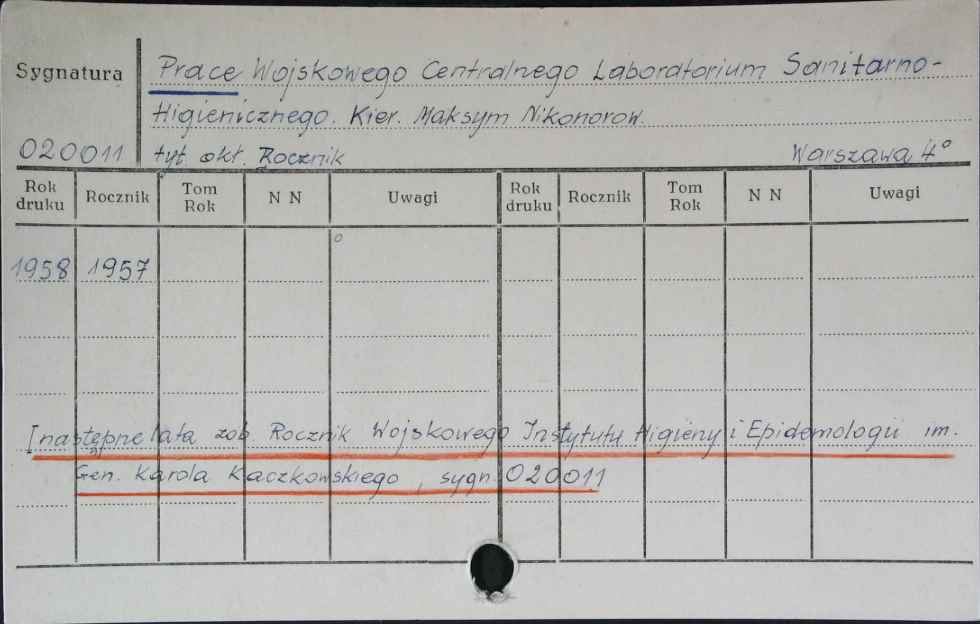 Sygnatura
Prace Wojskowego Centralnego Laboratorium Sanitarno-
Higienicznego. Kier. Maksym Nikonorow.
020011 tyt. okł. Rocznik Warszawa 4°
Rok druku Rocznik Tom Rok N N Uwagi Rok druku Rocznik Tom Rok N N Uwagi
1958 1957
[następne lata zob. Rocznik Wojskowego Instytutu Higieny i Epidemologii im.
Gen. Karola Kaczkowskiego, sygn. 020011